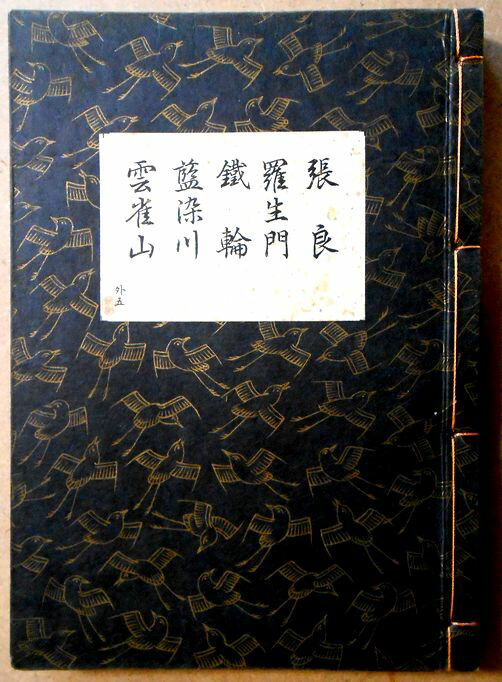 張良
羅生門
鐵輪
藍染川
雲雀山
外五